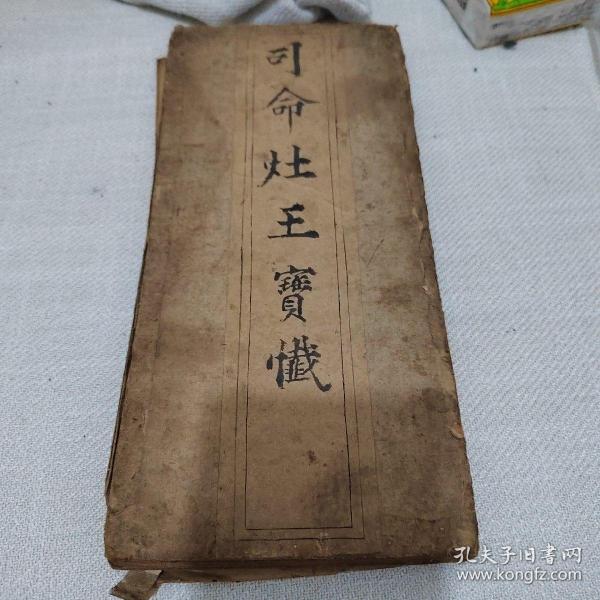 司命灶王寶懺
孔夫子旧書网
www.kongfz.com